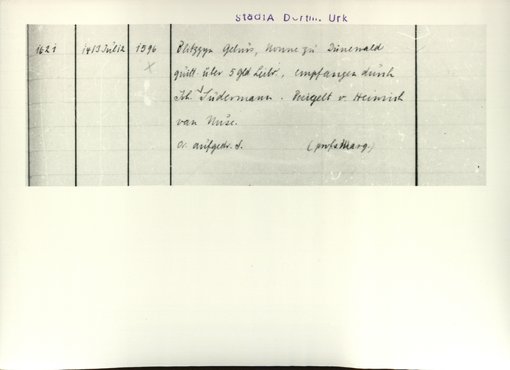 StadtA Dortm. Urk
1621 1413 Juli 2 1396 Elitzgyn Gebürs, Nonne zu Dünewald
x quitt. über 5 Gld Leibr., empfangen durch
Joh. Südermann. Besiegelt v. Heinrich
van Huse.
Or. aufgedr. S.